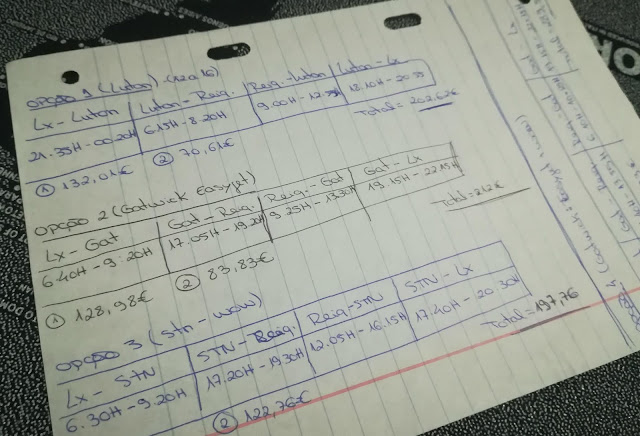 OPÇÃO 1 (Luton) (12 a 16)
Lx - Luton | Luton - Reiq. | Reiq - Luton | Luton - Lx
21.35H - 00.20H | 6.15H - 8.20H | 9.00H - 12. | 18.10H - 20.
① 132,01€ ② 70,61€ Total = 202,62€
OPÇÃO 2 (Gatwick Easyjet)
Lx - Gat | Gat - Reiq. | Reiq. - Gat | Gat - Lx
6.40H - 9:20H | 17.05H - 19.20H | 9.25H - 13.30H | 19.15H - 22.15H
① 128,98€ ② 83,83€ Total = 212€
OPÇÃO 3 (Stn - wow)
Lx - STN | STN - Reiq. | Reiq - STN | STN - Lx
6.30H - 9.20H | 17.20H - 19.30H | 12.05H - 16.15H | 17.40H - 20.30H
② 122,76€ Total = 197,76